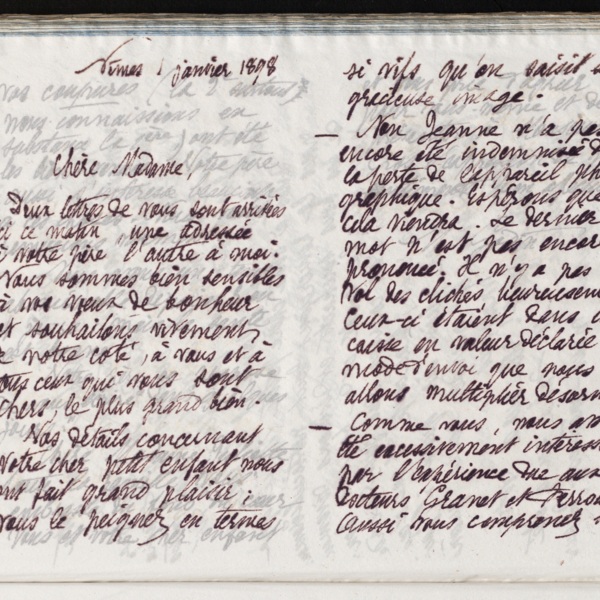 Nîmes 1 janvier 1898
Chère Madame,
Deux lettres de vous sont arrivées
ici ce matin, une adressée
à votre père l'autre à moi.
Nous sommes bien sensibles
à vos vœux de bonheur
et souhaitons vivement,
de notre côté, à vous et à
tous ceux qui vous sont
chers, le plus grand bien.
Vos détails concernant
votre cher petit enfant nous
ont fait grand plaisir ;
vous le peignez en termes
si vifs qu'on saisit
gracieuse image.
— Non Jeanne n'a pas
encore été indemnisée d
la perte de l'appareil pho
graphique. Espérons que
cela viendra. Le dernier
mot n'est pas encore
prononcé. Il n'y a pas
vol des clichés, heureusem
ceux-ci étaient dans
caisse en valeur déclarée
mode d'envoi que nous
allons multiplier désorm
— Comme vous, nous av
été excessivement intéress
par l'expérience due aux
docteurs Granet et
aussi vous comprenez